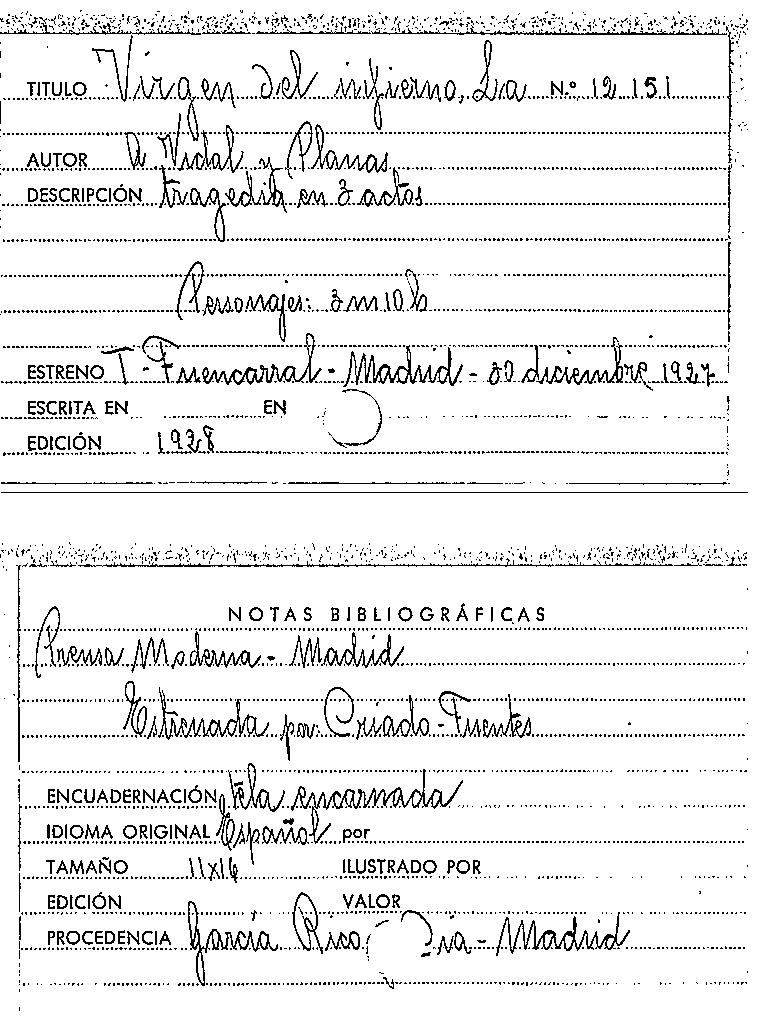 TITULO Virgen del infierno, La N.º 12 151
AUTOR A Vidal y Planas
DESCRIPCIÓN tragedia en 3 actos
Personajes: 3 m 10 h
ESTRENO T - Fuencarral - Madrid - 30 diciembre 1927
ESCRITA EN EN
EDICIÓN 1928
NOTAS BIBLIOGRÁFICAS
Prensa Moderna - Madrid
Estrenada por: Criado - Fuentes
ENCUADERNACIÓN tela encarnada
IDIOMA ORIGINAL Español por
TAMAÑO 11x16 ILUSTRADO POR
EDICIÓN VALOR
PROCEDENCIA García Rico - Madrid